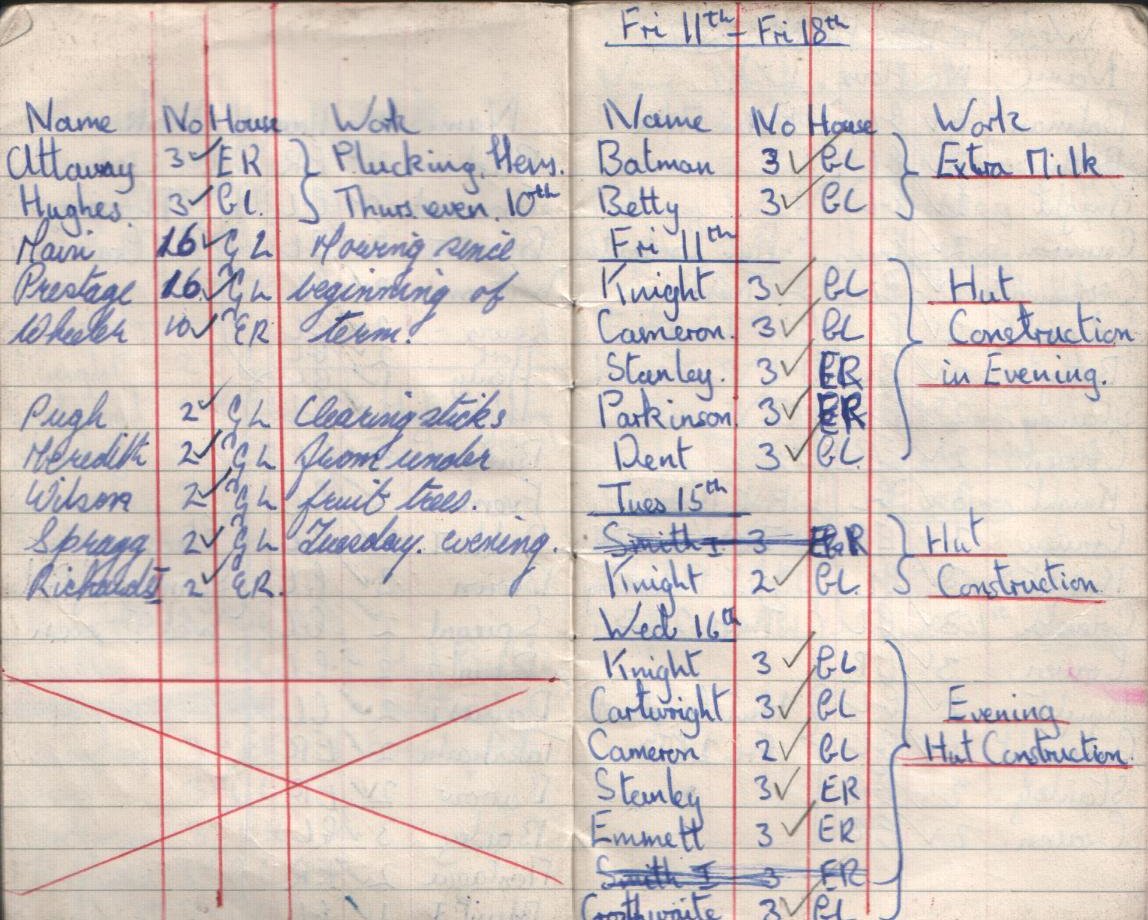 Name No House Work
Attaway 3 ✓ ER } Plucking Hens.
Hughes. 3 ✓ GL. } Thurs. even. 10th
Main 16 ✓ GL Mowing since
Prestage 16 ✓ GL beginning of
Wheeler 10 ✓ ER term.
Pugh 2 ✓ GL Clearing sticks
Meredith 2 ✓ GL from under
Wilson 2 ✓ GL fruit trees.
Spragg 2 ✓ GL Tuesday. evening.
Richards I 2 ✓ ER.
Fri 11th – Fri 18th
Name No House Work
Batman 3 ✓ GL } Extra Milk
Betty 3 ✓ GL
Fri 11th
Knight 3 ✓ GL } Hut
Cameron. 3 ✓ GL Construction
Stanley. 3 ✓ ER in Evening.
Parkinson. 3 ✓ ER
Dent 3 ✓ GL.
Tues 15th
Smith I 3 ER } Hut
Knight 2 ✓ GL. Construction.
Wed 16th
Knight 3 ✓ GL
Cartwright 3 ✓ GL } Evening
Cameron 2 ✓ GL Hut Construction.
Stanley 3 ✓ ER
Emmett 3 ✓ ER
Smith I 3 ER
3 ✓ GL